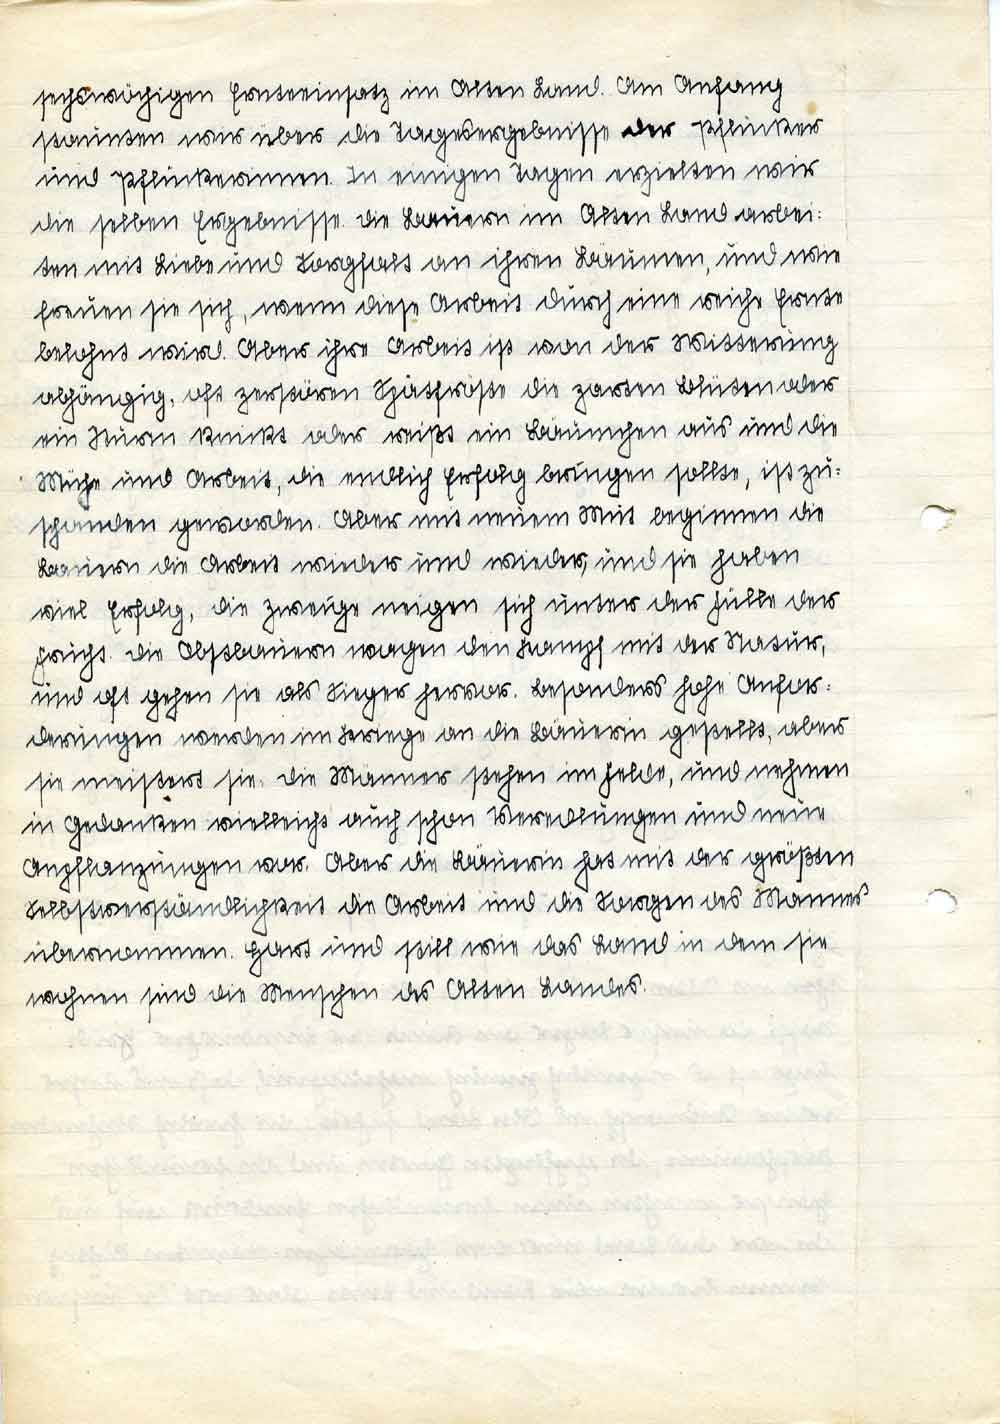 sechswöchigen Ernteeinsatz im Alten Land. Am Anfang
staunten wir über die Tagesergebnisse der Pflücker
und Pflückerinnen. In einigen Tagen erzielten wir
die selben Ergebnisse. Die Bauern im Alten Land arbei:
ten mit Liebe und Sorgfalt an ihren Bäumen, und wie
freuen sie sich, wenn diese Arbeit durch eine reiche Ernte
belohnt wird. Aber ihre Arbeit ist von der Witterung
abhängig, oft zerstören Spätfröste die zarten Blüten oder
ein Sturm knickt oder reißt ein Bäumchen aus und die
Mühe und Arbeit, die endlich Erfolg bringen sollte, ist zu:
schanden geworden. Aber mit neuem Mut beginnen die
Bauern die Arbeit wieder und wieder, und sie haben
viel Erfolg, die Zweige neigen sich unter der Fülle der
Frucht. Die Obstbauern wagen den Kampf mit der Natur,
und oft gehen sie als Sieger hervor. Besonders hohe Anfor:
derungen werden im Kriege an die Bäuerin gestellt, aber
sie meistert sie. Die Männer stehen im Felde, und nehmen
in Gedanken vielleicht auch schon Veredlungen und neue
Anpflanzungen vor. Aber die Bäuerin hat mit der größten
Selbstverständlichkeit die Arbeit und die Sorgen des Mannes
übernommen. Hart und still wie das Land in dem sie
wohnen sind die Menschen des Alten Landes.